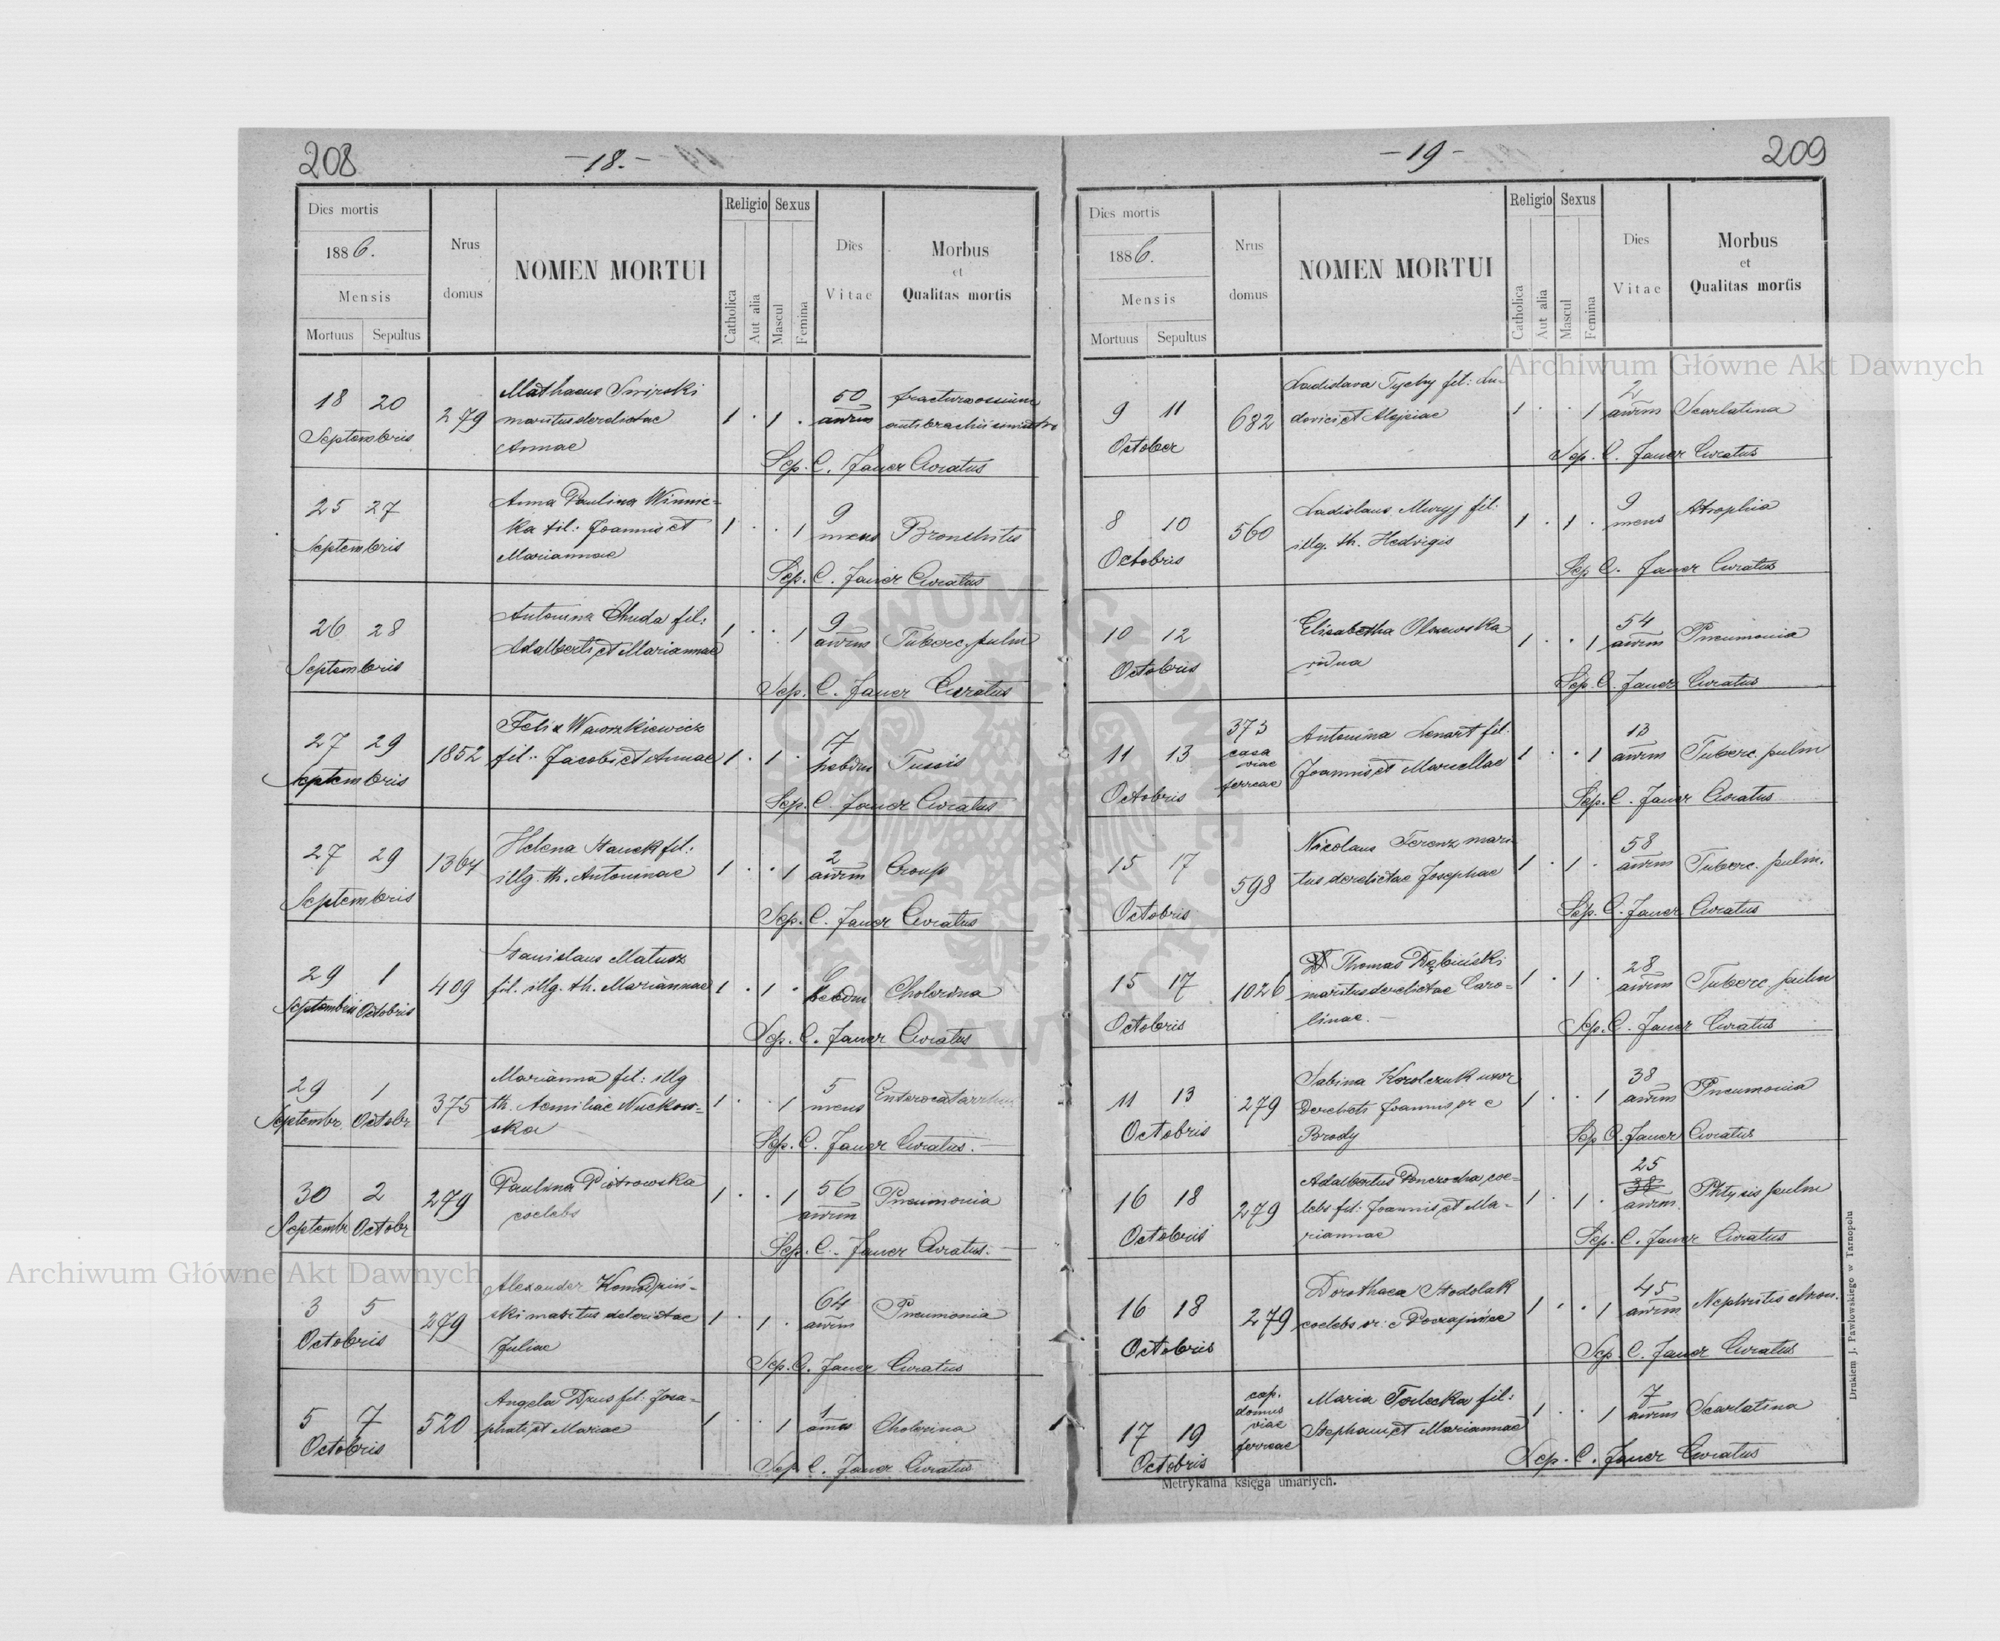 208
-18.-
Dies mortis
1886.
Mensis
Mortuus Sepultus
Nrus domus
NOMEN MORTUI
Religio
Catholica
Aut alia
Sexus
Mascul
Femina
Dies Vitae
Morbus et Qualitas mortis
18 20 Septembris 279
Mathaeus Smirski
maritus derelictae
Annae
1 . 1 . 50 annm
fractura ossium
antibrachii sinistri
Sep. C. Jauer Curatus
25 27 Septembris
Anna Paulina Winnic-
ka fil: Joannis et
Mariannae
1 . . 1 9 mens Bronchitis
Sep. C. Jauer Curatus
26 28 Septembris
Antonina Chuda fil:
Adalberti et Mariannae
1 . . 1 9 annm Tuberc. pulm
Sep. C. Jauer Curatus
27 29 Septembris 1852
Felix Wawrzkiewicz
fil: Jacobi et Annae
1 . 1 . 7 hebdm Tussis
Sep. C. Jauer Curatus
27 29 Septembris 1364
Helena Stanek fil:
illg. th. Antoninae
1 . . 1 2 annm Croup
Sep. C. Jauer Curatus
29 Septembris 1 Octobris 409
Stanislaus Matusz
fil. illg. th. Mariannae
1 . 1 . 6 hebdm Cholerina
Sep. C. Jauer Curatus
29 Septembr. 1 Octobr 375
Marianna fil: illg
th. Aemiliae Wuckow-
ska
1 . . 1 5 mens Enterocatarrhus
Sep. C. Jauer Curatus.
30 Septembr 2 Octobr 279
Paulina Piotrowska
coelebs
1 . . 1 56 annm Pneumonia
Sep. C. Jauer Curatus.
3 5 Octobris 279
Alexander
ski maritus
Juliae
1 . 1 . 64 annm Pneumonia
Sep. C. Jauer Curatus
5 7 Octobris 520
Angela Dzus fil: Josa-
phati et Mariae
1 . . 1 1 anns Cholerina
Sep C. Jauer Curatus
-19-
209
Dies mortis
1886.
Mensis
Mortuus Sepultus
Nrus domus
NOMEN MORTUI
Religio
Catholica
Aut alia
Sexus
Mascul
Femina
Dies Vitae
Morbus et Qualitas mortis
9 11 October 682
Ladislava Tychy fil: Lu-
dovici et Aloysiae
1 . . 1 2 annm Scarlatina
Sep. C. Jauer Curatus
8 10 Octobris 560
Ladislaus Muryj fil:
illg. th. Hedvigis
1 . 1 . 9 mens Atrophia
Sep C. Jauer Curatus
10 12 Octobris
Elisabetha Olszewska
vidua
1 . . 1 54 annm Pneumonia
Sep. C. Jauer Curatus
11 13 Octobris 373 casa viae ferreae
Antonina Lenart fil.
Joannis et Marcellae
1 . . 1 13 annm Tuberc. pulm
Sep. C. Jauer Curatus
15 17 Octobris 598
Nicolaus Ferenz mari-
tus derelictae Josephae
1 . 1 . 58 annm Tuberc. pulm.
Sep. C. Jauer Curatus
15 17 Octobris 1026
Thomas Dębiński
maritus derelictae Caro-
linae.
1 . 1 . 28 annm Tuberc pulm
Sep. C. Jauer Curatus
11 13 Octobris 279
Sabina Korolczuk uxor
derelicti Joannis or e
Brody
1 . . 1 38 annm Pneumonia
Sep C. Jauer Curatus
16 18 Octobris 279
Adalbertus coe-
lebs fil: Joannis et Ma-
riannae
1 . 1 . 25 38 annm. Phtysis pulm
Sep. C. Jauer Curatus
16 18 Octobris 279
Dorothaea Stodolak
coelebs or: e
1 . . 1 45 annm Nephritis chron.
Sep C. Jauer Curatus
17 19 Octobris cap. domus viae ferreae
Maria Torlecka fil:
Stephani et Mariannae
1 . . 1 7 annm Scarlatina
Sep. C. Jauer Curatus
Metrykalna księga umarłych.
Drukiem J. Pawłowskiego w Tarnopolu
Archiwum Główne Akt Dawnych
Archiwum Główne Akt Dawnych
ARCHIWUM GŁÓWNE AKT DAWNYCH